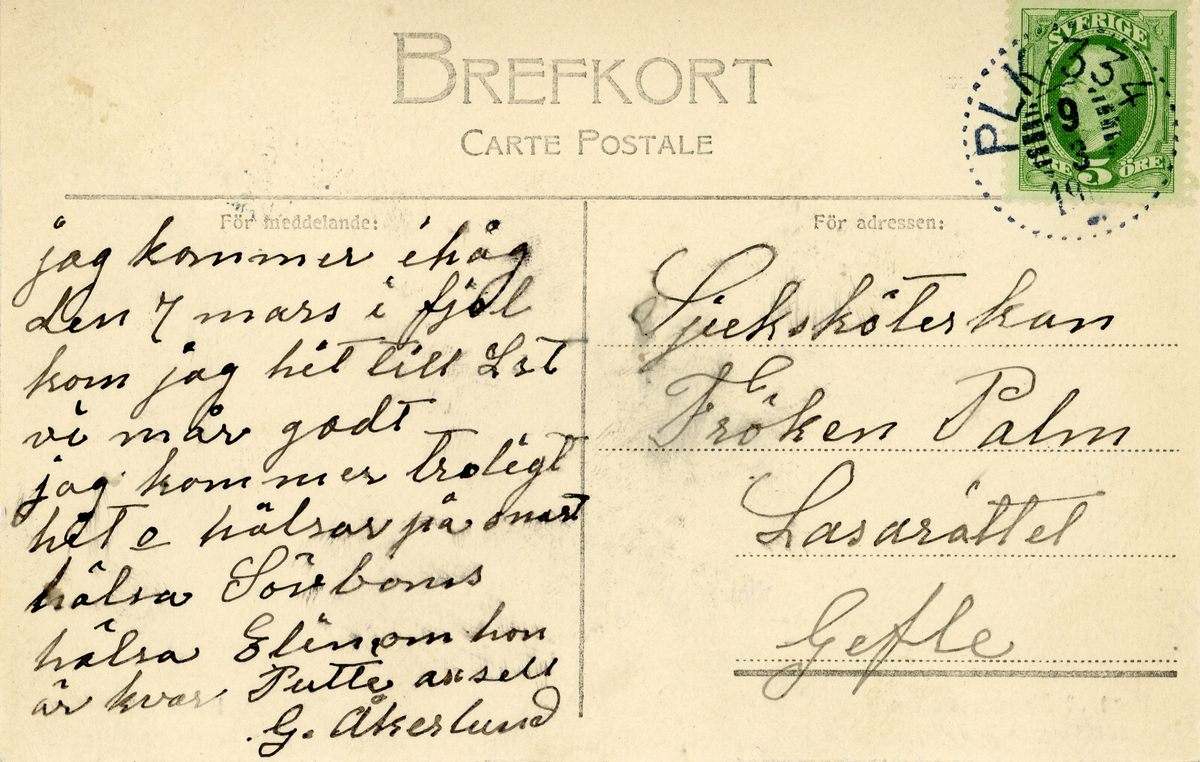 BREFKORT
CARTE POSTALE
SVERIGE
5 ÖRE
PLK 334
9 3
19
För meddelande:
jag kommer ihåg
den 7 mars i fjol
kom jag hit till Lst
vi mår godt
jag kommer troligt
hit o hälsar på snart
hälsa Sörboms
hälsa Elin om hon
är kvar Putte axsell
G. Åkerlund
För adressen:
Sjuksköterskan
Fröken C. Palm
Lasarättet
Gefle